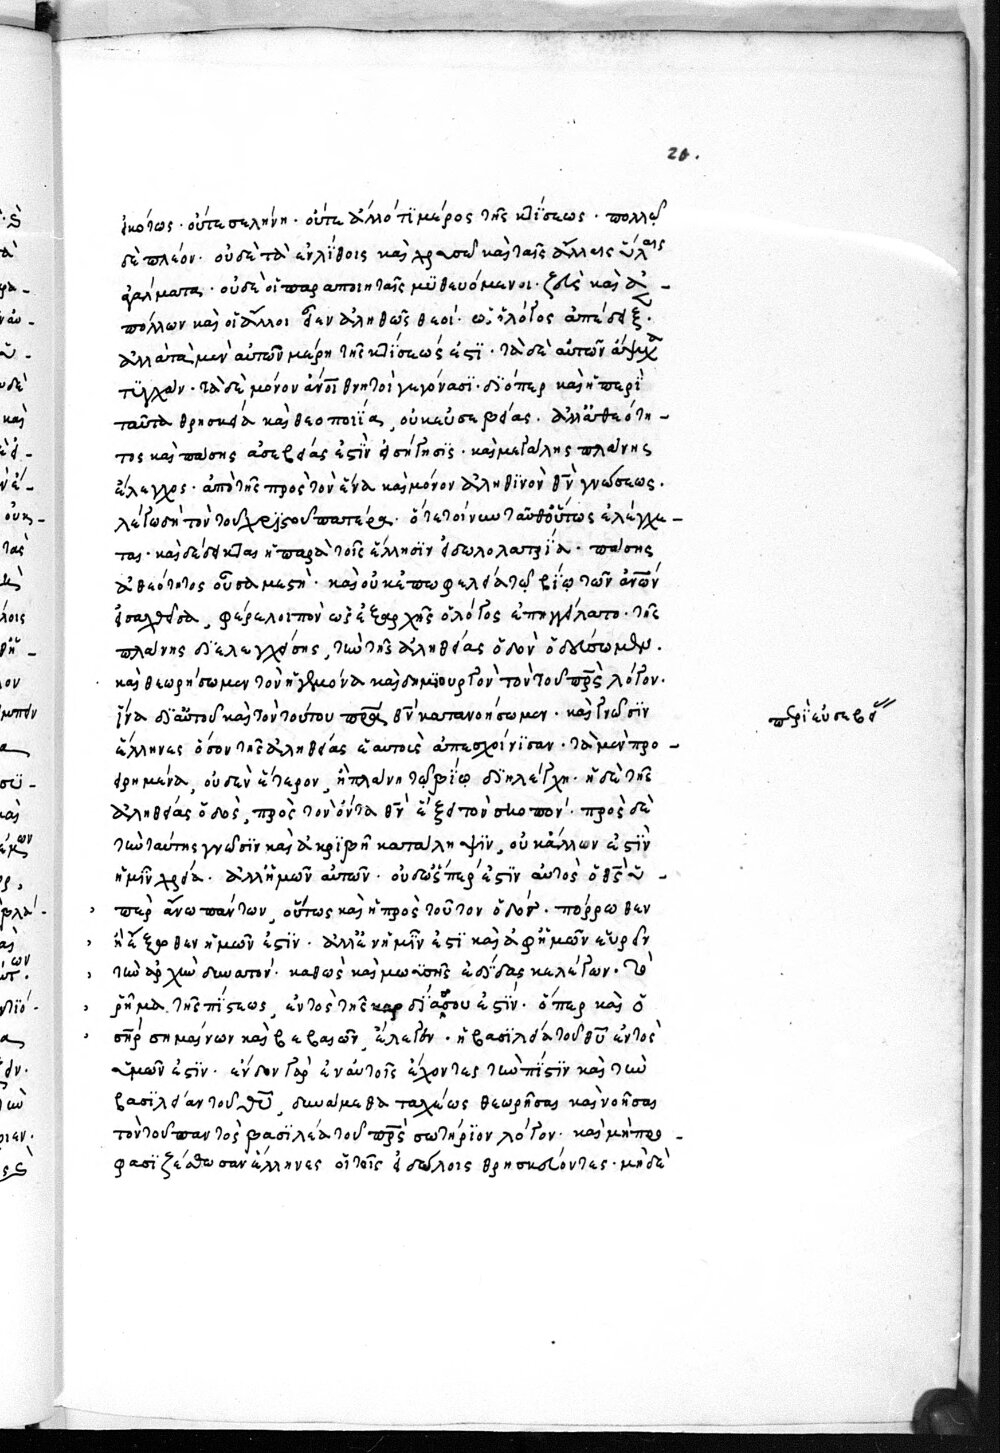 20.
εἰκότως· οὔτε σελήνη· οὔτε ἄλλό τϊ μέρος τῆς κτίσεως· πολλῶ
δὲ πλέον· οὐδὲ τὰ ἐν λίθοις καὶ χρυσῶ καὶ ταῖς ἄλλαις ὕλαις
ἀγάλματα· οὐδὲ οἱ παρὰ ποιηταῖς μϋθευόμενοι· ζεὺς καὶ ἀ-
πόλλων καὶ οἱ ἄλλοι εἶεν ἀληθῶς θεοί· ὡς ὁ λόγος ἀπέδειξε·
ἀλλὰ τὰ μὲν αὐτῶν μέρη τῆς κτίσεώς ἐστϊ· τὰ δὲ αὐτῶν ἄψυχα
τυγχάνει· τὰ δὲ μόνον ἄνοι θνητοὶ γεγόνασϊ· διόπερ καὶ ἡ περὶ
ταῦτα θρησκεία καὶ θεοποιΐα, οὐκ εὐσεβείας· ἀλλ' ἀθεότη-
τος καὶ πάσης ἀσεβείας ἐστὶν εἰσήγησϊς· καὶ μεγάλης πλάνης
ἔλεγχος· ἀπὸ τῆς πρὸς τὸν ἕνα καὶ μόνον ἀληθϊνὸν θν γνώσεως·
λέγω δὴ τὸν τοῦ χριστοῦ πατέρα· ὅτε τοίνυν ταῦθ' οὕτως ἐλέγχε-
ται· καὶ δέδεικται ἡ παρὰ τοῖς ἕλλησϊν εἰδωλολατρία· πάσης
ἀθεότητος οὖσα μεστή· καὶ οὐκ ἐπ' ὠφελεία τῶ βίω τῶν ἀνων
εἰσαχθεῖσα, φέρε λοιπὸν ὡς ἐξαρχῆς ὁ λόγος ἐπηγγείλατο· τῆς
πλάνης διελεγχθείσης, τὴν τῆς ἀληθείας ὁδὸν ὁδεύσωμεν·
καὶ θεωρήσωμεν τὸν ἡγεμόνα καὶ δημιουργὸν τὸν τοῦ πρς λόγον·
ἵνα δι' αὐτοῦ καὶ τὸν τούτου πρα θν κατανοήσωμεν· καὶ γνῶσϊν
ἕλληνες ὅσον τῆς ἀληθείας ἑαυτοὺς ἀπεσχοίνισαν· τὰ μὲν προ-
ειρημένα, οὐδὲν ἕτερον, ἢ πλάνη τῶ βίω διηλέγχθη· ἡ δὲ τῆς
ἀληθείας ὁδὸς, πρὸς τὸν ὄντα θν ἕξει τὸν σκοπόν· πρὸς δὲ
τὴν ταύτης γνῶσϊν καὶ ἀκριβῆ κατάληψϊν, οὐκ ἄλλων ἐστὶν
ἡμῖν χρεία· ἀλλ' ἡμῶν αὐτῶν· οὐδ' ὥσπέρ ἐστϊν αὐτὸς ὁ θς ὑ-
περάνω πάντων, οὕτως καὶ ἡ πρὸς τοῦτον ὁδὸς· πόρρωθεν
ἢ ἔξωθεν ἡμῶν ἐστϊν· ἀλλ' ἐν ἡμῖν ἐστϊ καὶ ἀφ' ἡμῶν εὑρεῖν
τὴν ἀρχὴν δυνατόν· καθὼς καὶ μωϋσῆς ἐδίδασκε λέγων· τὸ
ῥῆμα τῆς πίστεως, ἐντὸς τῆς καρδίας σου ἐστϊν· ὅπερ καὶ ὁ
σηρ σημαίνων καὶ βεβαιῶν, ἔλεγεν· ἡ βασϊλεία τοῦ θυ ἐντὸς
ὑμῶν ἐστϊν· ἔνδον γὰρ ἐν ἑαυτοῖς ἔχοντες τὴν πίστϊν καὶ τὴν
βασϊλείαν τοῦ θυ, δυνάμεθα ταχέως θεωρῆσαι καὶ νοῆσαι
τὸν τοῦ παντὸς βασϊλέα τοῦ πρς σωτήριον λόγον· καὶ μὴ προ-
φασϊζέσθωσαν ἕλληνες οἱ τοῖς εἰδώλοις θρησκεύοντες· μηδὲ
περὶ εὐσεβεί